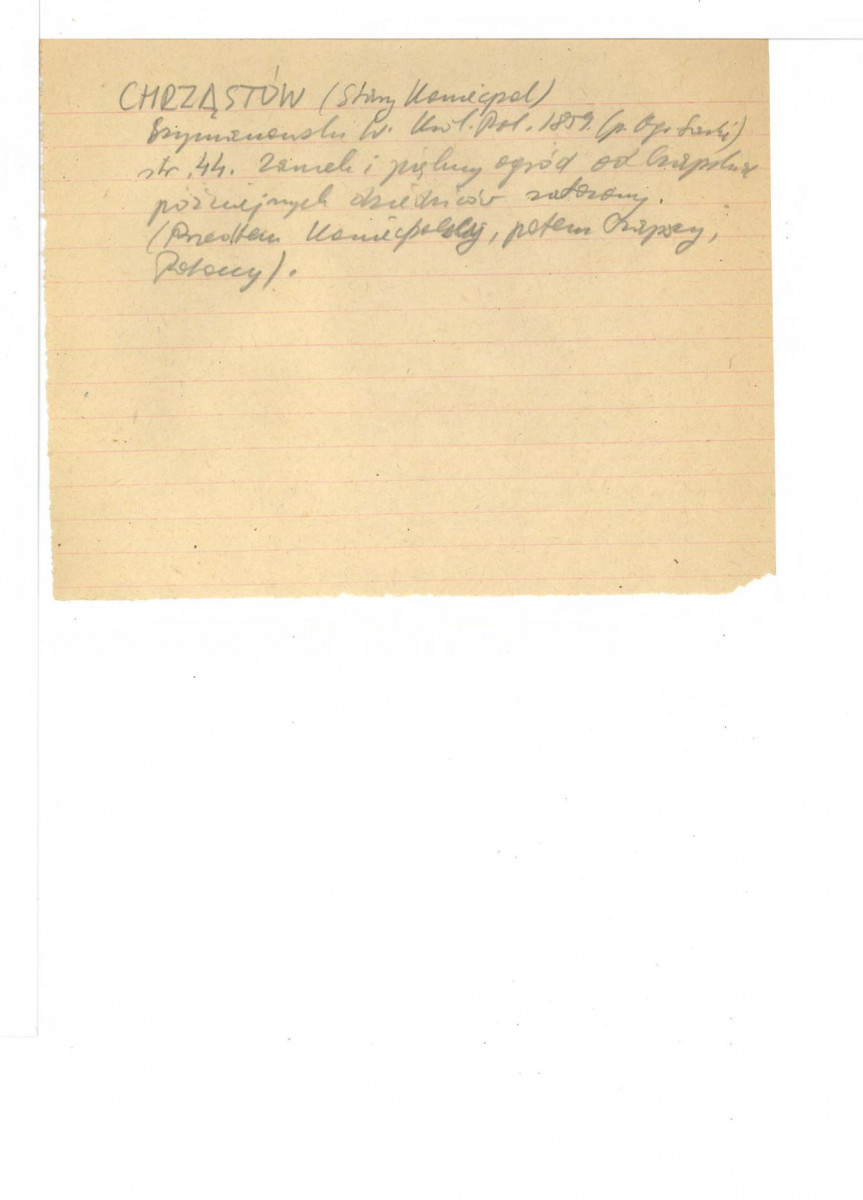 CHRZĄSTÓW (Stary Koniecpol)
Szymanowski W. Król. Pol. 1859. (p. Ogr. Saski)
str. 44. Zamek i piękny ogród od
późniejszych dziedziców założony.
(Przedtem Koniecpolscy, potem Czapscy,
Potoccy).